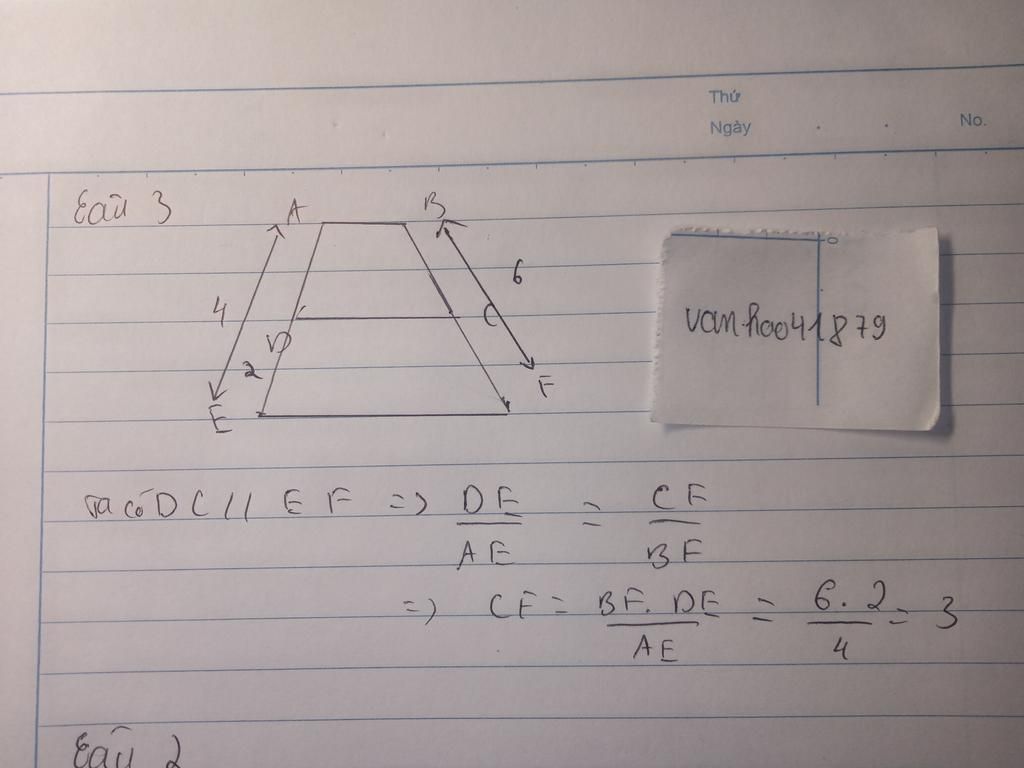 Thứ
Ngày
No.
Câu 3
A
B
4
6
D
C
2
E
F
vanhoo41879
Ta có DC // EF => DE/AE = CF/BF
=> CF = BF.DE/AE = 6.2/4 = 3
Câu 2